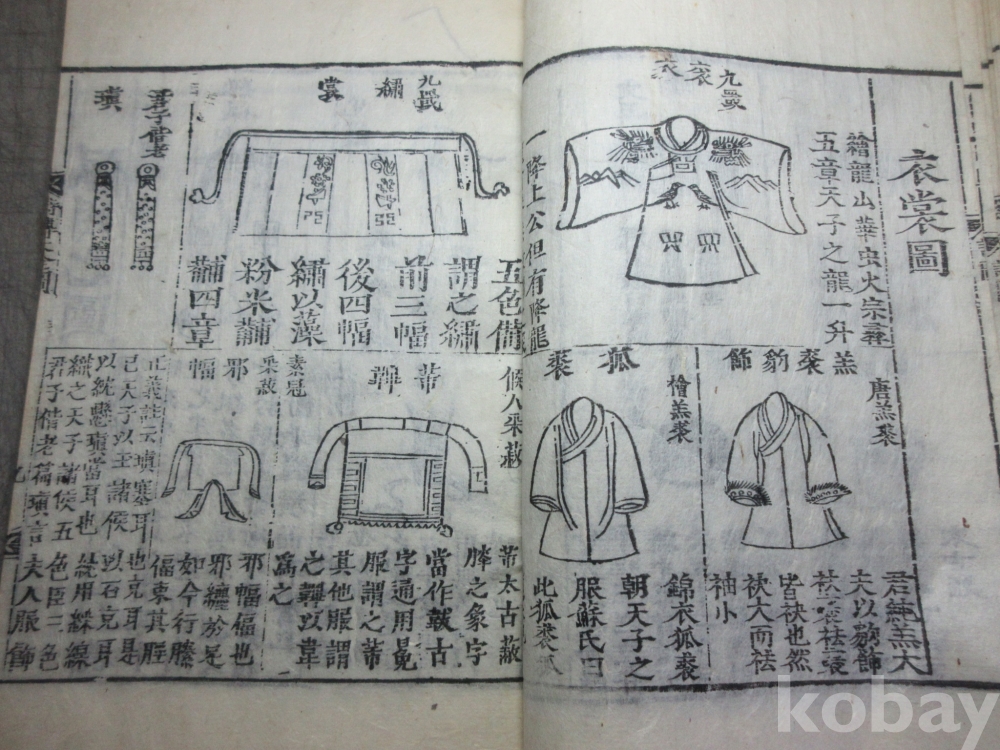 衣裳圖
繪龍山華虫火宗彛
五章天子之龍一升
九罭
袞衣
一降上公但有降龍
羔裘豹飾
唐羔裘
君純羔大
夫以豹飾
皆袂也然
袂大而袪
袖小
狐裘
檜羔裘
錦衣狐裘
朝天子之
服蘇氏曰
此狐裘
九罭
繡裳
五色備
謂之繡
前三幅
後四幅
繡以藻
粉米黼
黼四章
君子偕老
瑱
候人采菽
芾韠
芾太古蔽
膝之象字
當作韍古
字通用冕
服謂之芾
其他服謂
之韠以韋
為之
素冠
采菽
邪幅
邪幅偪也
邪纏於足
如今行縢
偪束其脛
正義註云瑱塞耳也充耳是
已天子以玉諸侯以石充耳
以紞懸瑱當耳也紞用綵線
織之天子諸侯五色臣三色
君子偕老篇瑱言夫人服飾
kobay